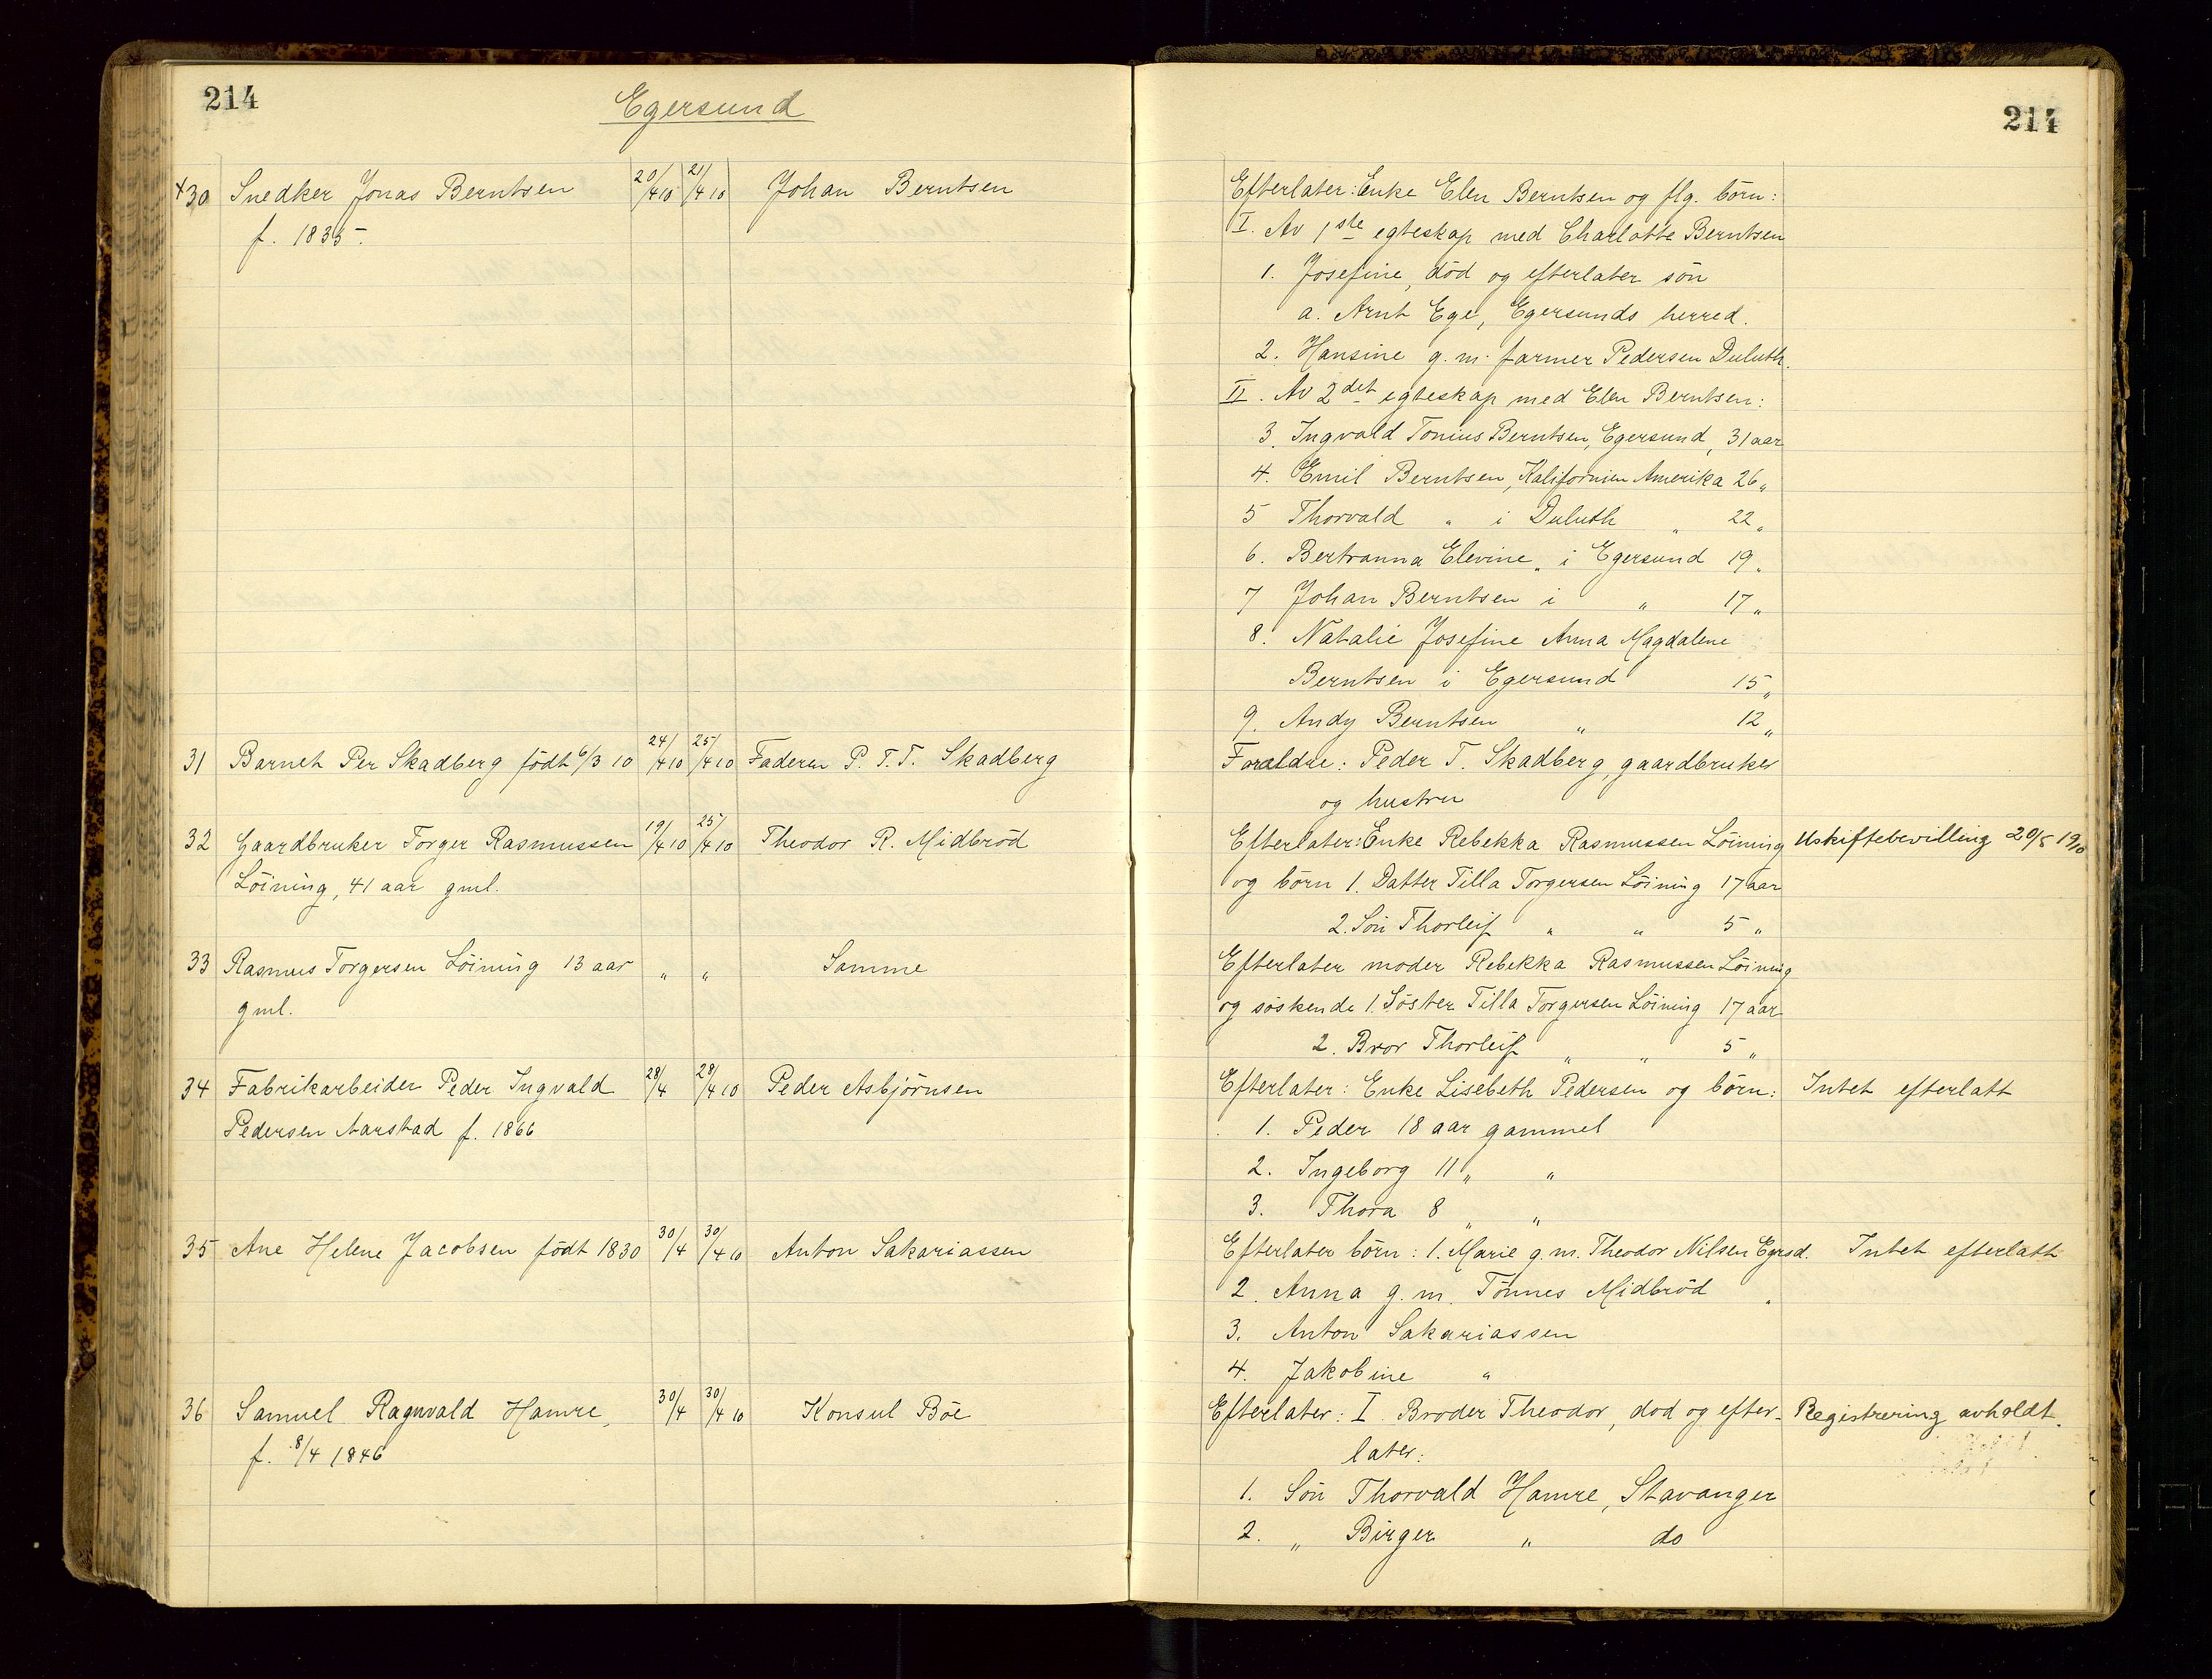 214
Egersund
214
+30 Snedker Jonas Berntsen 20/4 10 21/4 10 Johan Berntsen
f. 1835.
Efterlater: Enke Elen Berntsen og flg. börn:
I. Av 1ste egteskap med Charlotte Berntsen
1. Josefine, död og efterlater sön
a. Arnt Ege, Egersunds herred.
2. Hansine g. m. farmer Pedersen Duluth.
II. Av 2det egteskap med Elen Berntsen:
3. Ingvald Tonius Berntsen, Egersund, 31 aar
4. Emil Berntsen, Kalifornien Amerika 26 "
5 Thorvald " i Duluth " 22 "
6. Bertranna Elevine " i Egersund 19 "
7 Johan Berntsen i " 17 "
8. Natalie Josefine Anna Magdalene
Berntsen i Egersund 15 "
9. Andy Berntsen " 12 "
31 Barnet Per Skadberg födt 6/3 10 24/4 10 25/4 10 Faderen P. T. T. Skadberg
Forældre: Peder T. Skadberg, gaardbruker
og hustru
32 Gaardbruker Torger Rasmussen 19/4 10 25/4 10 Theodor R. Midbröd
Löining, 41 aar gml.
Efterlater: Enke Rebekka Rasmussen Löining Uskiftebevilling 20/5 1910
og börn 1. Datter Tilla Torgersen Löining 17 aar
2. Sön Thorleif " " 5 "
33 Rasmus Torgersen Löining 13 aar " " Samme
gml.
Efterlater moder Rebekka Rasmussen Löining
og söskende 1. Söster Tilla Torgersen Löining 17 aar
2. Bror Thorleif " " 5 "
34 Fabrikarbeider Peder Ingvald 28/4 28/4 10 Peder Asbjörnsen
Pedersen Aarstad f. 1866
Efterlater: Enke Lisebeth Pedersen og börn: Intet efterlatt
1. Peder 18 aar gammel
2. Ingeborg 11 " "
3. Thora 8 " "
35 Ane Helene Jacobsen födt 1830 30/4 30/4 10 Anton Sakariassen
Efterlater börn: 1. Marie g. m. Theodor Nilsen Egrsd. Intet efterlatt
2. Anna g. m. Tönnes Midbröd "
3. Anton Sakariassen
4. Jakobine "
36 Samuel Ragnvald Hamre, 30/4 30/4 10 Konsul Böe
f. 8/4 1846
Efterlater: I. Broder Theodor, död og efter- Registrering avholdt.
later:
1. Sön Thorvald Hamre, Stavanger
2. " Birger " do